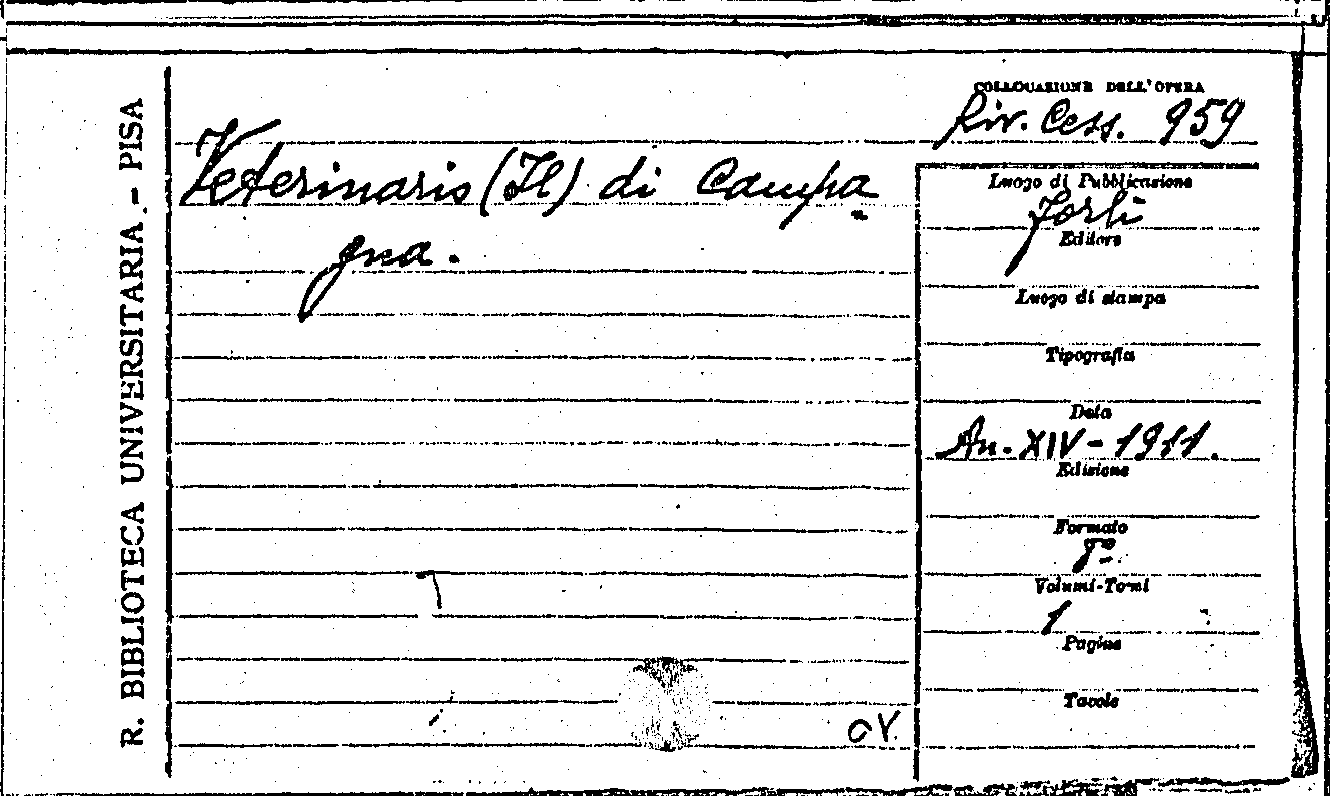 R. BIBLIOTECA UNIVERSITARIA - PISA
COLLOCAZIONE DELL'OPERA
Riv. Cess. 959
Veterinario (Il) di Campa
gna.
Luogo di Pubblicazione
Forlì
Editore
Luogo di stampa
Tipografia
Data
An. XIV - 1911.
Edizione
Formato
8º
Volumi-Tomi
1
Pagine
Tavole